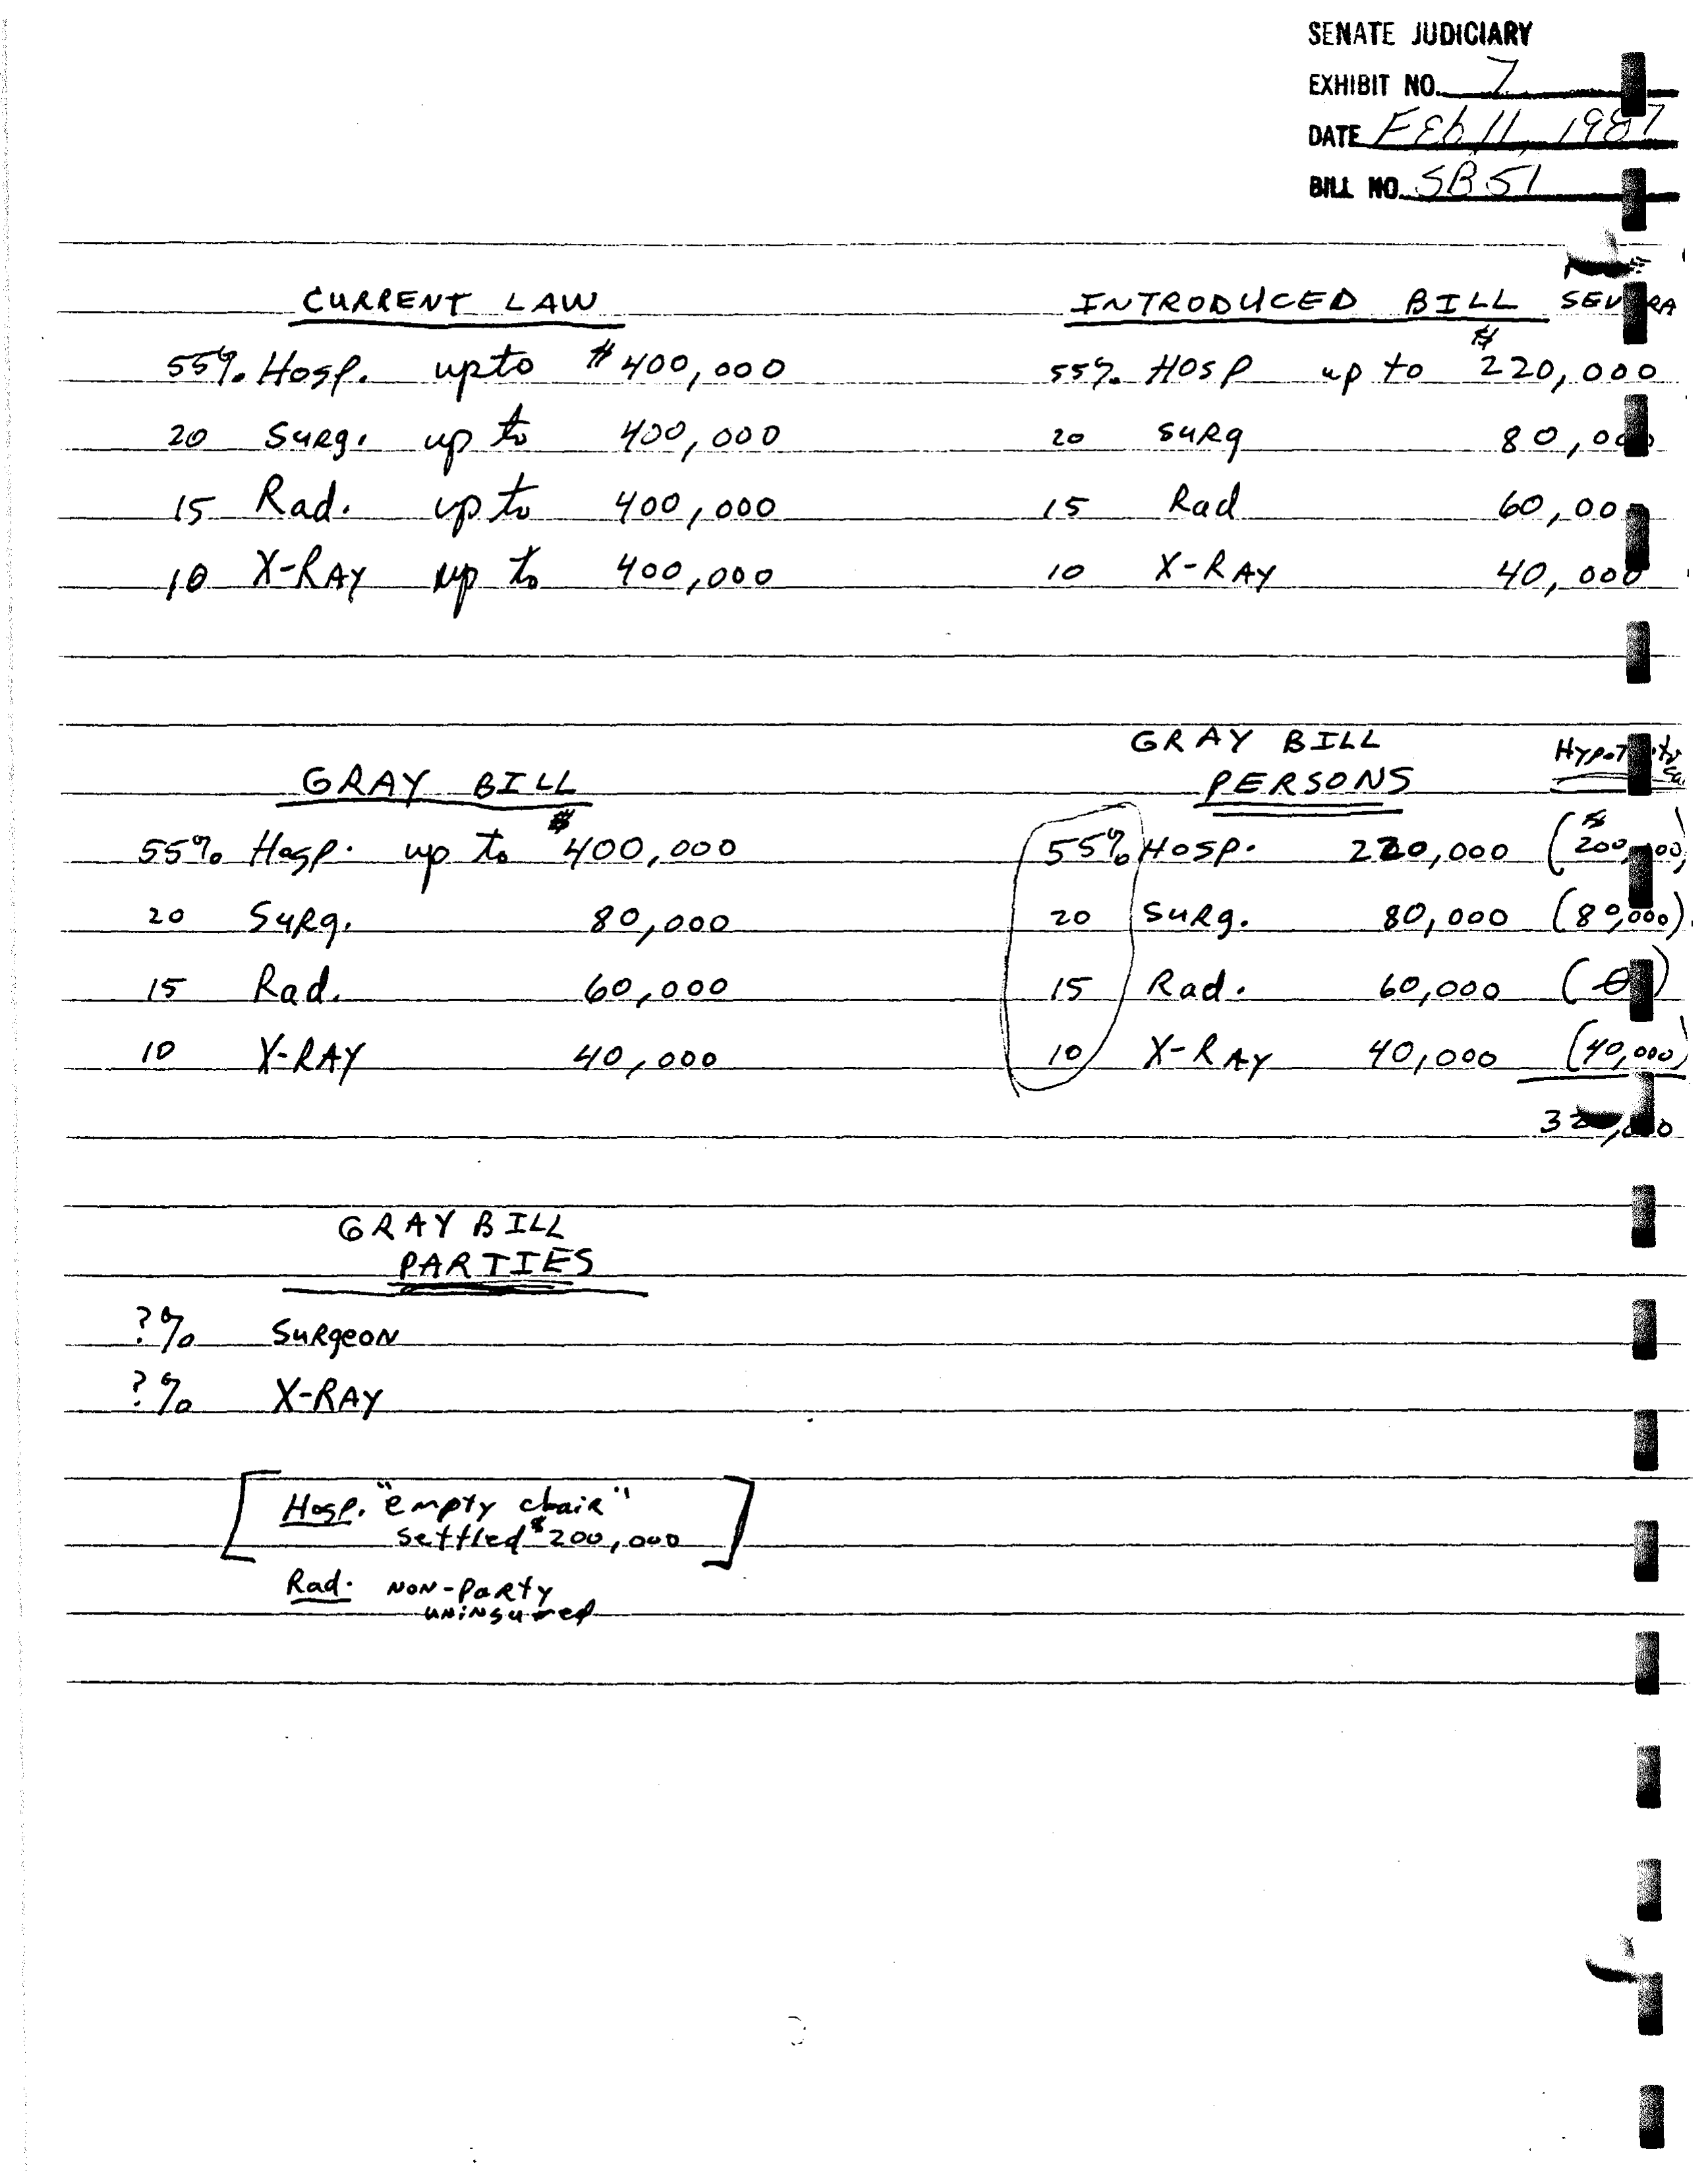 SENATE JUDICIARY
EXHIBIT NO. 7
DATE FEb 11, 1987
BILL NO. SB 51
CURRENT LAW
55% Hosp. up to $400,000
20 Surg. up to 400,000
15 Rad. up to 400,000
10 X-RAY up to 400,000
INTRODUCED BILL
55% Hosp up to $220,000
20 surg 80,000
15 Rad 60,000
10 X-RAY 40,000
GRAY BILL
55% Hosp. up to $400,000
20 Surg. 80,000
15 Rad. 60,000
10 X-RAY 40,000
GRAY BILL
PERSONS
55% Hosp. 220,000 ($200,000)
20 Surg. 80,000 (80,000)
15 Rad. 60,000 (0)
10 X-RAY 40,000 (40,000)
GRAY BILL
PARTIES
?% SURGEON
?% X-RAY
[Hosp. "empty chair"
settled $200,000]
Rad. NON-PARTY
UNINSURED